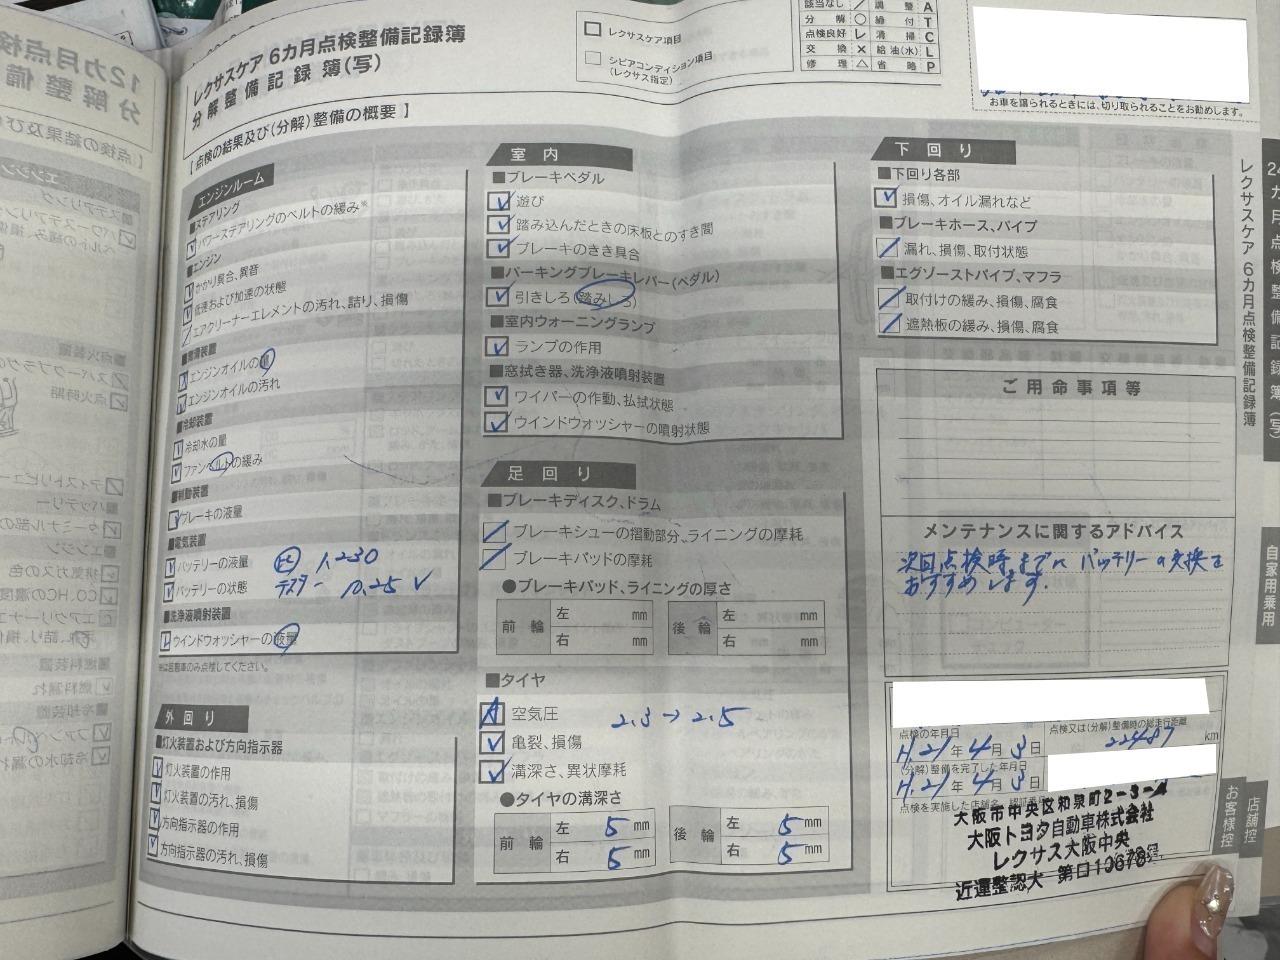 レクサスケア 6カ月点検整備記録簿
分解整備記録簿(写)
レクサスケア項目
シビアコンディション項目
(レクサス指定)
該当なし ／ 調整 A
分解 ○ 締付 T
点検良好 レ 清掃 C
交換 × 給油(水) L
修理 △ 省略 P
お車を譲られるときには、切り取られることをお勧めします。
【 点検の結果及び(分解)整備の概要 】
エンジンルーム
■ステアリング
パワーステアリングのベルトの緩み※
■エンジン
かかり具合、異音
低速および加速の状態
エアクリーナーエレメントの汚れ、詰り、損傷
■潤滑装置
エンジンオイルの量
エンジンオイルの汚れ
■冷却装置
冷却水の量
ファンベルトの緩み
■制動装置
ブレーキの液量
■電気装置
バッテリーの液量 比 1.230
バッテリーの状態 テスター 10.25 レ
■洗浄液噴射装置
ウインドウォッシャーの液量
外回り
■灯火装置および方向指示器
灯火装置の作用
灯火装置の汚れ、損傷
方向指示器の作用
方向指示器の汚れ、損傷
室内
■ブレーキペダル
遊び
踏み込んだときの床板とのすき間
ブレーキのきき具合
■パーキングブレーキレバー(ペダル)
引きしろ(踏みしろ)
■室内ウォーニングランプ
ランプの作用
■窓拭き器、洗浄液噴射装置
ワイパーの作動、払拭状態
ウインドウォッシャーの噴射状態
足回り
■ブレーキディスク、ドラム
ブレーキシューの摺動部分、ライニングの摩耗
ブレーキパッドの摩耗
●ブレーキパッド、ライニングの厚さ
前輪 左 mm 後輪 左 mm
右 mm 右 mm
■タイヤ
空気圧 2.3→2.5
亀裂、損傷
溝深さ、異状摩耗
●タイヤの溝深さ
前輪 左 5 mm 後輪 左 5 mm
右 5 mm 右 5 mm
下回り
■下回り各部
損傷、オイル漏れなど
■ブレーキホース、パイプ
漏れ、損傷、取付状態
■エグゾーストパイプ、マフラ
取付けの緩み、損傷、腐食
遮熱板の緩み、損傷、腐食
ご用命事項等
メンテナンスに関するアドバイス
次回点検時までに バッテリーの交換を
おすすめします。
点検の年月日
H.21年 4月 3日
点検又は(分解)整備時の総走行距離
22487 km
(分解)整備を完了した年月日
H.21年 4月 3日
大阪市中央区和泉町2-3-4
大阪トヨタ自動車株式会社
レクサス大阪中央
近運整認大 第口10678号
レクサスケア 6カ月点検整備記録簿
カ月点検整備記録簿(写)
自家用乗用
お客様控
店舗控
12カ月点検
分解整備